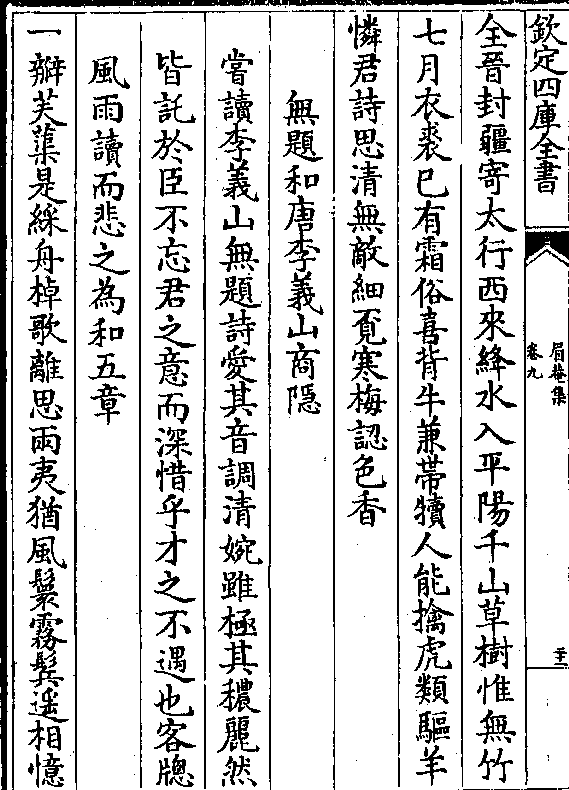 欽定四庫全書
眉菴集
卷九
二十二
全晉封疆寄太行西來絳水入平陽千山草樹惟無竹
七月衣裘已有霜俗喜背牛兼帶犢人能擒虎類驅羊
憐君詩思清無敵細覔寒梅認色香
無題和唐李義山商隱
嘗讀李義山無題詩愛其音調清婉雖極其穠麗然
皆託於臣不忘君之意而深惜乎才之不遇也客牕
風雨讀而悲之為和五章
一瓣芙蕖是綵舟棹歌離思兩夷猶風鬟霧鬢遥相憶